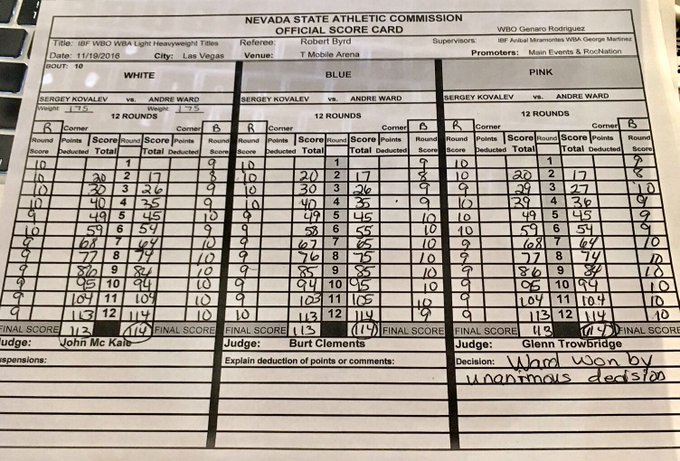 NEVADA STATE ATHLETIC COMMISSION
OFFICIAL SCORE CARD
WBO Genaro Rodriguez
Title: IBF WBO WBA Light Heavyweight Titles Referee: Robert Byrd Supervisors: IBF Anibal Miramontes WBA George Martinez
Date: 11/19/2016 City: Las Vegas Venue: T Mobile Arena Promoters: Main Events & RocNation
BOUT: 10
WHITE BLUE PINK
SERGEY KOVALEV vs. ANDRE WARD SERGEY KOVALEV vs. ANDRE WARD SERGEY KOVALEV vs. ANDRE WARD
Weight 175 Weight: 175
12 ROUNDS 12 ROUNDS 12 ROUNDS
R Corner Corner B R Corner Corner B R Corner Corner B
Round Score Points Deducted Score Total Round Score Total Points Deducted Round Score Round Score Points Deducted Score Total Round Score Total Points Deducted Round Score Round Score Points Deducted Score Total Round Score Total Points Deducted Round Score
10 1 9 10 1 9 10 1 9
10 20 2 17 8 10 20 2 17 8 10 20 2 17 8
10 30 3 26 9 10 30 3 26 9 9 29 3 27 10
10 40 4 35 9 10 40 4 35 9 10 39 4 36 9
9 49 5 45 10 9 49 5 45 10 10 49 5 45 9
10 59 6 54 9 9 58 6 55 10 10 59 6 54 9
9 68 7 64 10 9 67 7 65 10 9 68 7 64 10
9 77 8 74 10 9 76 8 75 10 9 77 8 74 10
9 86 9 84 10 9 85 9 85 10 9 86 9 84 10
9 95 10 94 10 9 94 10 95 10 9 95 10 94 10
9 104 11 104 10 9 103 11 105 10 9 104 11 104 10
9 113 12 114 10 10 113 12 114 9 9 113 12 114 10
FINAL SCORE 113 114 FINAL SCORE FINAL SCORE 113 114 FINAL SCORE FINAL SCORE 113 114 FINAL SCORE
Judge: John Mc Kaie Judge: Burt Clements Judge: Glenn Trowbridge
uspensions: Explain deduction of points or comments: Decision: Ward won by
unanimous decision